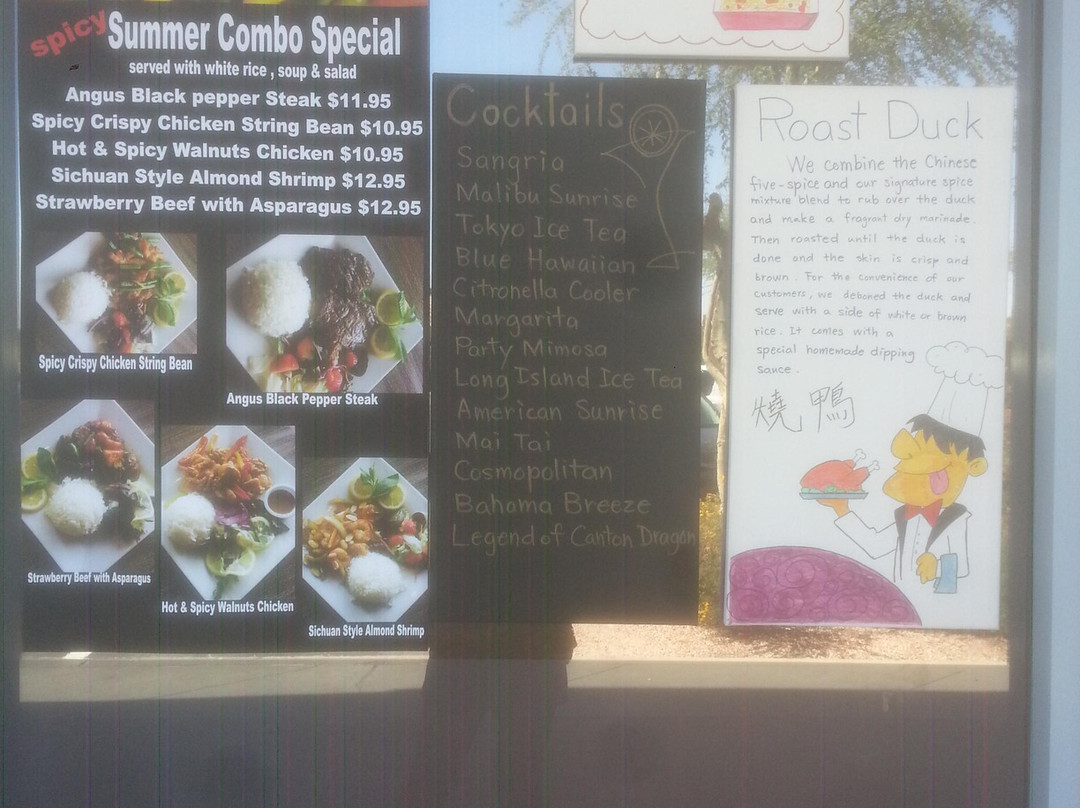 spicy
Summer Combo Special
served with white rice , soup & salad
Angus Black pepper Steak $11.95
Spicy Crispy Chicken String Bean $10.95
Hot & Spicy Walnuts Chicken $10.95
Sichuan Style Almond Shrimp $12.95
Strawberry Beef with Asparagus $12.95
Spicy Crispy Chicken String Bean
Angus Black Pepper Steak
Strawberry Beef with Asparagus
Hot & Spicy Walnuts Chicken
Sichuan Style Almond Shrimp
Cocktails
Sangria
Malibu Sunrise
Tokyo Ice Tea
Blue Hawaiian
Citronella Cooler
Margarita
Party Mimosa
Long Island Ice Tea
American Sunrise
Mai Tai
Cosmopolitan
Bahama Breeze
Legend of Canton Dragon
Roast Duck
We combine the Chinese
five-spice and our signature spice
mixture blend to rub over the duck
and make a fragrant dry marinade.
Then roasted until the duck is
done and the skin is crisp and
brown. For the convenience of our
customers, we deboned the duck and
serve with a side of white or brown
rice. It comes with a
special homemade dipping
sauce.
燒鴨